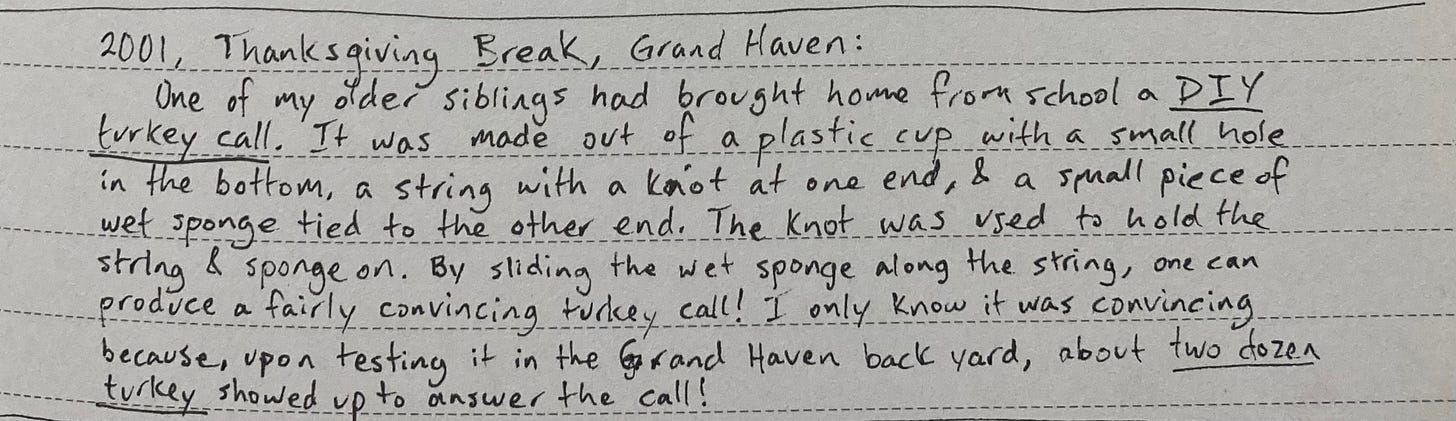 2001, Thanksgiving Break, Grand Haven:
One of my older siblings had brought home from school a DIY
turkey call. It was made out of a plastic cup with a small hole
in the bottom, a string with a knot at one end, & a small piece of
wet sponge tied to the other end. The knot was used to hold the
string & sponge on. By sliding the wet sponge along the string, one can
produce a fairly convincing turkey call! I only know it was convincing
because, upon testing it in the Grand Haven back yard, about two dozen
turkey showed up to answer the call!